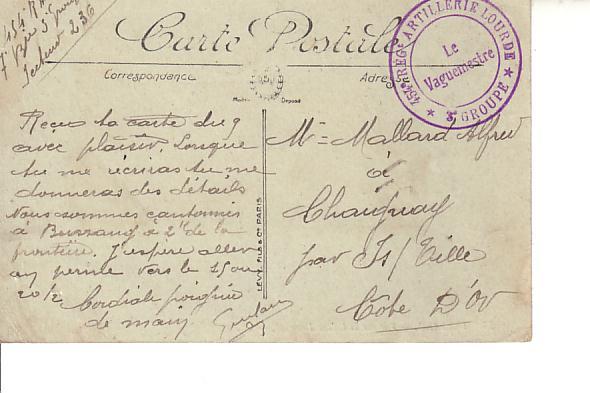 154e R.A.L
7e Bie 3e Groupe
Secteur 236
Carte Postale
Correspondance
Adresse
Modèle Déposé
154e REGt ARTILLERIE LOURDE
Le
Vaguemestre
* 3e GROUPE *
Reçu ta carte du 9
avec plaisir. Lorsque
tu me écriras tu me
donneras des détails
Nous sommes cantonnés
à Bussang à 2 de la
frontière. J'espère aller
en perme vers le 15 ou
20/2 Cordiale poignée
de main
LEVY FILS & Cie PARIS
Mr = Mallard Alfred
à
Chaignay
par Is/Tille
Côte D'Or